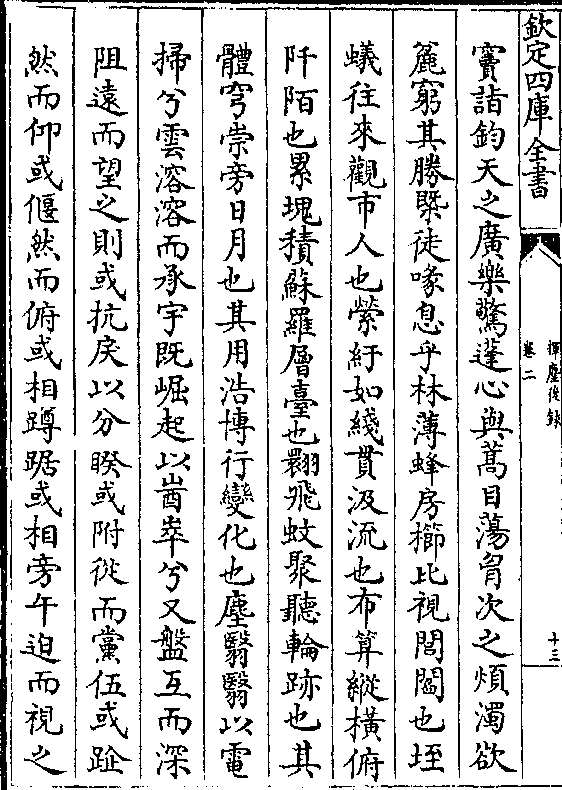 欽定四庫全書
揮麈後錄
卷二
十三
賓詣鈞天之廣樂驚蓬心與蒿目蕩胷次之煩濁欲
窮其勝槩徒喙息乎林薄蜂房櫛比視閭閻也垤
蟻往來觀市人也縈紆如綫貫汲流也布算縱横俯
阡陌也累塊積蘇羅層臺也翾飛蚊聚聽輪跡也其
體穹崇旁日月也其用浩博行變化也塵翳翳以電
掃兮雲溶溶而承宇既崛起以崷崒兮又盤互而深
阻遠而望之則或抗戾以分睽或附從而黨伍或跂
然而仰或偃然而俯或相蹲踞或相旁午迫而視之